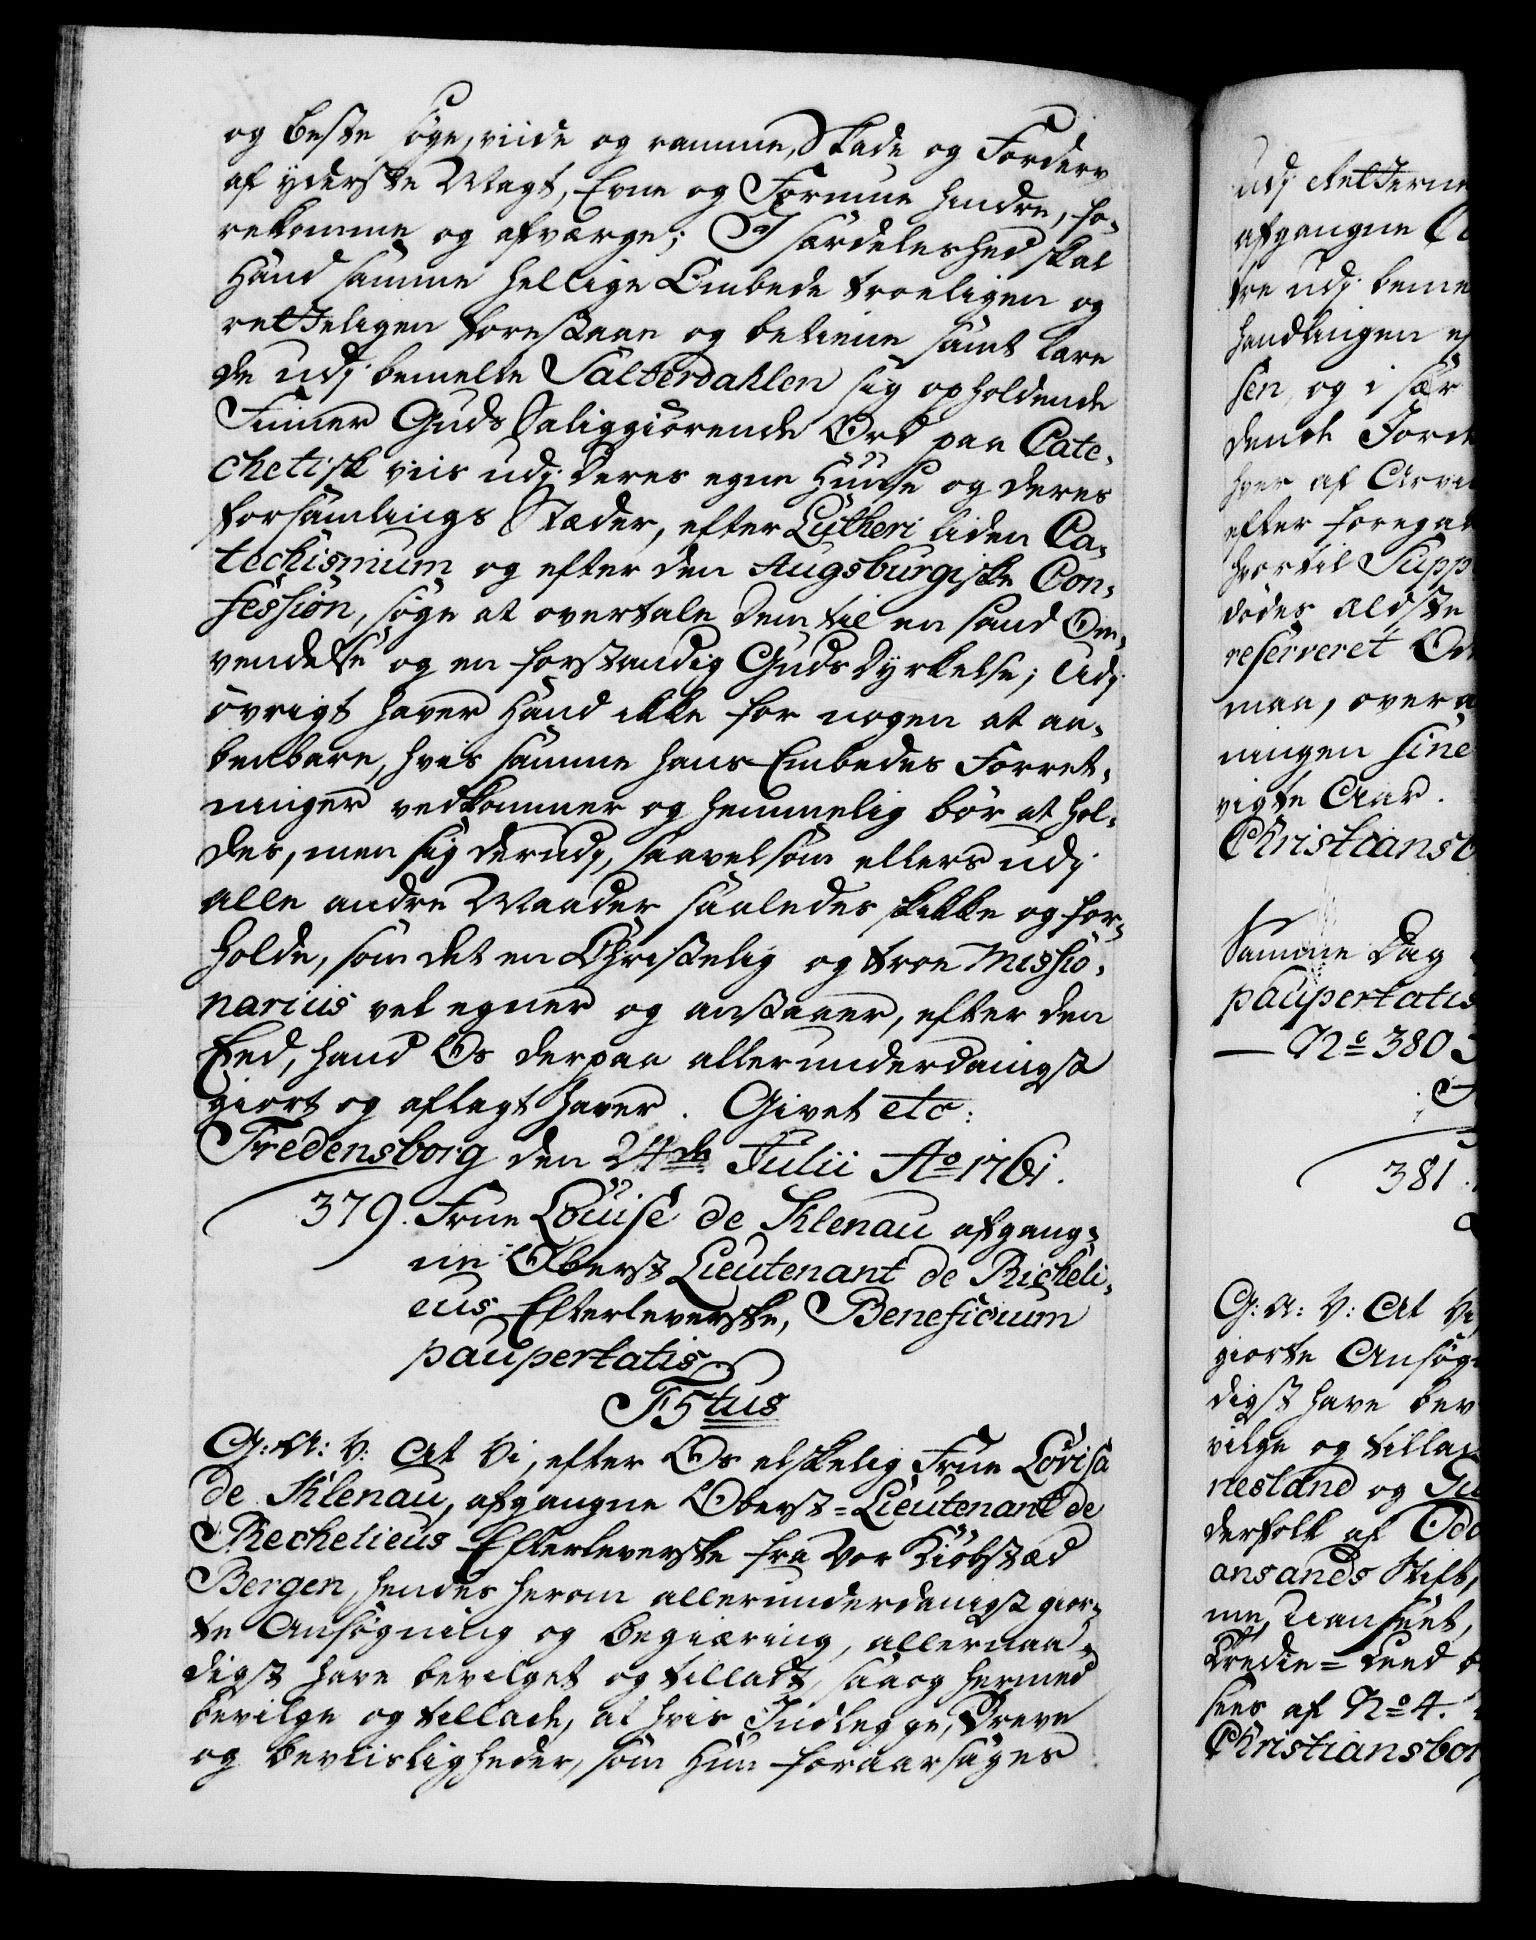 og beste söge, viide og ramme, Skade og Forderv
af yderste Magt, Evne og Formue hindre, fo-
rekomme og afværge; I særdeleshed skal
Hand samme hellige Embede troeligen og
retteligen forestaae og betiene samt lære
de udj bemelte Salterdahlen sig opholdende
Finner Guds Saliggiörende Ord paa Cate-
chetisk viis udj deres egne Huuse og deres
forsamlings Stæder, efter Lutheri liden Ca-
techismum og efter den Augsburgiske Con-
fession, söge at overtale dem til en sand Om-
vendelse og en forstandig Guds Dyrkelse; Udj
övrigt haver Hand ikke for nogen at aa-
benbare, hvis samme hans Embedes Forret-
ninger vedkommer og hemmelig bör at hol-
des, men sig derudj, saavelsom ellers udj
alle andre Maader saaledes skikke og for-
holde, som det en Christelig og troe Missio-
narius vel egner og anstaaer, efter den
Eed, hand Os derpaa allerunderdanigst
giort og aflagt haver. Givet etc:
Fredensborg den 24de Julii Ao 1761.
379. Frue Louise de Klenau afgang-
ne Oberst Lieutenant de Richeli-
eus Efterleverske, Beneficium
paupertatis
F5tus
G: A: V: At Vi, efter Os elskelig Frue Lovisa
de Klenau, afgangne Oberst-Lieutenant de
Rechelieus Efterleverske fra Vor Kiöbstæd
Bergen, hendes herom allerunderdanigst gior-
te Ansögning og Begiæring, allernaa-
digst have bevilget og tilladt, saa og hermed
bevilge og tillade, at hvis Indlegge, Breve
og Beviisligheder, som Hun foraarsages
udj Retterne
afgangne
tre udj beme
handlingen ef
sen, og i sær
dende Ford
hver af Arvi
efter foregaa
hvortil Supp
dödes ældste
reserveret
maa, over a
ningen sine
vigte Aar.
Christiansb
Samme Dag
paupertatis
— No 380
381.
G: A: V: At Vi
giorte Ansög
digst have bev
vilge og tillad
nesland og Gu
derfolk af Odd
ansands Stift,
me, uanseet,
tredie-Leed
sees af No 4.
Christiansbor